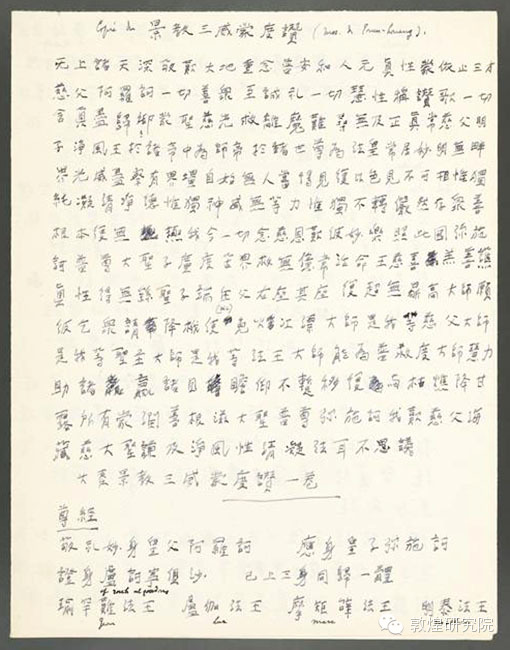 Copie du 景教三威蒙度讚 (mss. de Touen-houang).
无上諸天深敬歎大地重念普安和人元真性蒙依止三才
慈父阿羅訶一切善衆至誠礼一切慧性稱讚歌一切
含真盡歸仰蒙聖慈光救離魔難尋無及正真常慈父明
子淨風王於諸帝中為師帝於諸世尊為法皇常居妙明無畔
界光威盡察有界壃自始無人嘗得見復以色見不可相惟獨
純凝清淨德惟獨神威無等力惟獨不轉儼然存衆善
根本復無極我今一切念慈恩歎彼妙樂照此國弥施
訶普尊大聖子廣度苦界救無億常活命王慈喜羔善護
真性得無繇聖子端任父右座其座復超無鼎高大師願
彼乞衆請降栰使免火江漂大師是我等慈父大師
是我等聖主大師是我等法王大師能為普救度大師慧力
助諸羸諸目瞻仰不蹔移復与枯燋降甘
露所有蒙潤善根滋大聖普尊弥施訶我歎慈父海
藏慈大聖謙及淨風性清凝法耳不思議
大秦景教三威蒙度讚一卷
尊經
敬礼妙身皇父阿羅訶 應身皇子弥施訶
證身盧訶寧俱沙 已上三身同歸一體
瑜罕難法王 盧伽法王 摩矩辭法王 明泰法王
Luc Marc
敦煌研究院